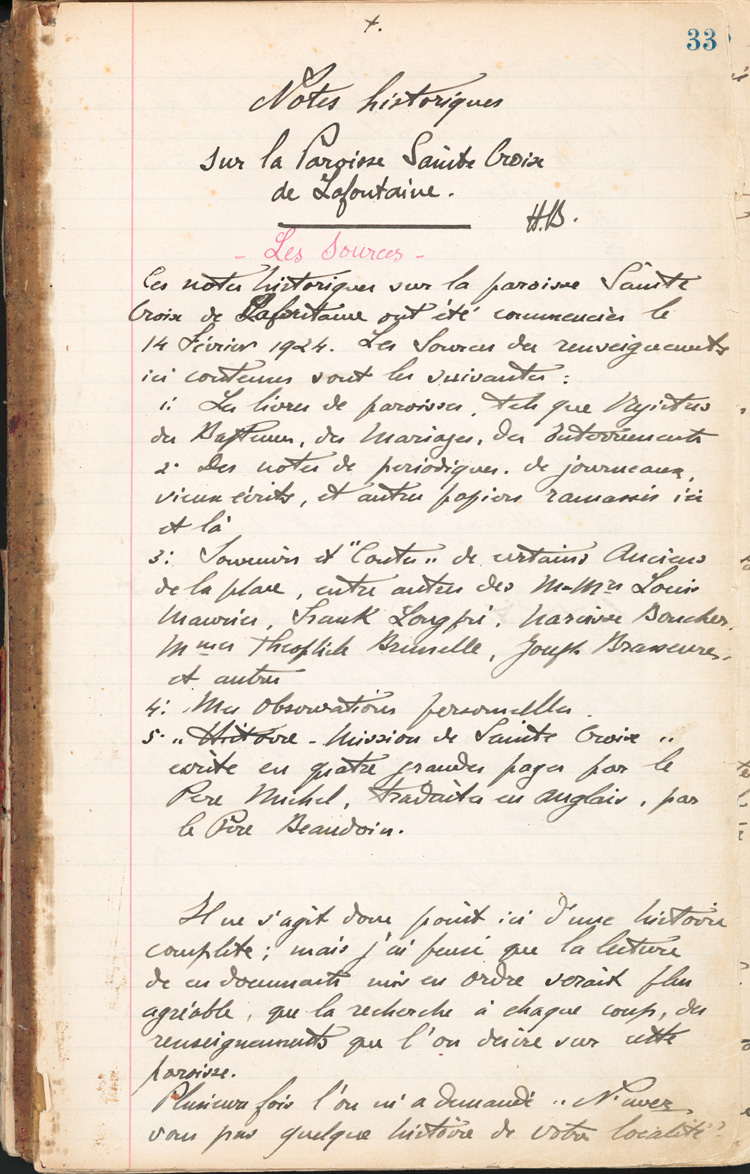 +.
33
Notes historiques
sur la Paroisse Sainte Croix
de Lafontaine.
H.B.
- Les Sources -
Ces notes historiques sur la paroisse Sainte
Croix de Lafontaine ont été commencées le
14 Février 1924. Les Sources des renseignements
ici contenus sont les suivantes :
1: Les livres de paroisses, tels que Registres
des Baptemes, des Mariages, des Enterrements
2. Des notes de periodiques. de journeaux,
vieux écrits, et autres papiers ramassés ici
et là
3: Souvenirs et "Contes" de certains Anciens
de la place, entre autres des M-Mrs Louis
Maurice, Frank Longpré, Narcisse Boucher,
Mmes Theophile Brunelle, Joseph Brasseur,
et autres
4: Mes Observations personnelles.
5. " Histoire - Mission de Sainte Croix "
ecrite en quatre grandes pages par le
Pere Michel, traduite en anglais, par
le Père Beaudoin.
Il ne s'agit donc point ici d'une histoire
complète ; mais j'ai pensé que la lecture
de ces documents mis en ordre serait plus
agréable, que la recherche à chaque coup, des
renseignements que l'on desire sur cette
paroisse.
Plusieurs fois l'on m'a demandé " N'avez
vous pas quelque histoire de votre localité ?